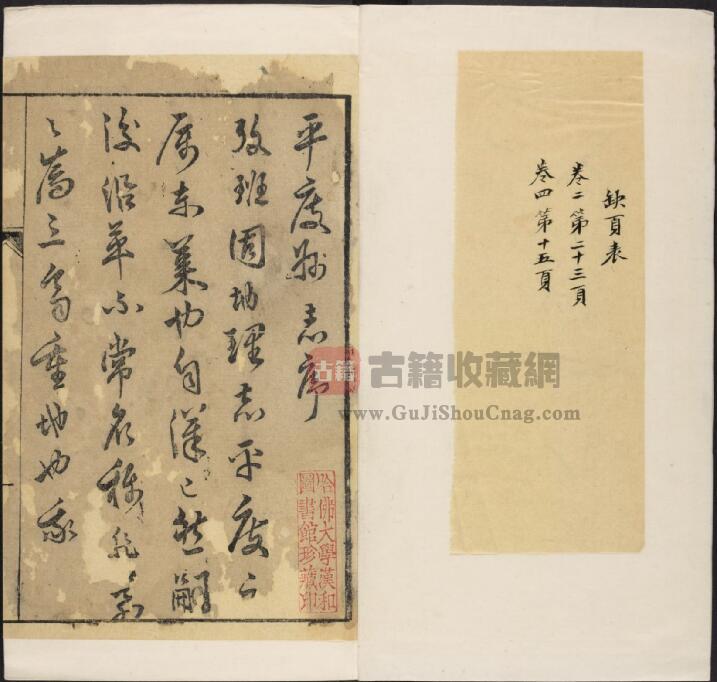 缺頁表
卷二第二十三頁
卷四第十五頁
平度志序
攷班固地理志平度之
属東萊也自漢已然嗣
後沿革不常名稱
三齊重地也我
哈佛大學漢和
圖書館珍藏印
古籍
古籍收藏網
www.GuJiShouCnag.com